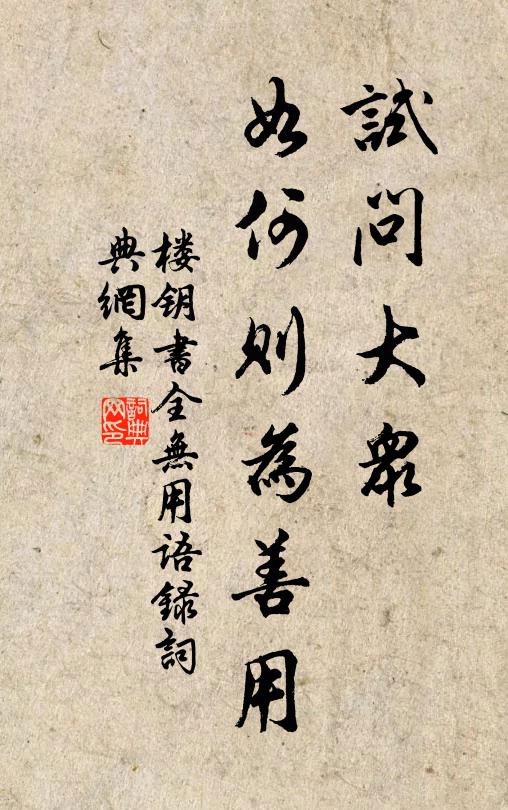 試問大衆
如何則為善用
楼钥書全無用語録詞
典網集
詞典
网印